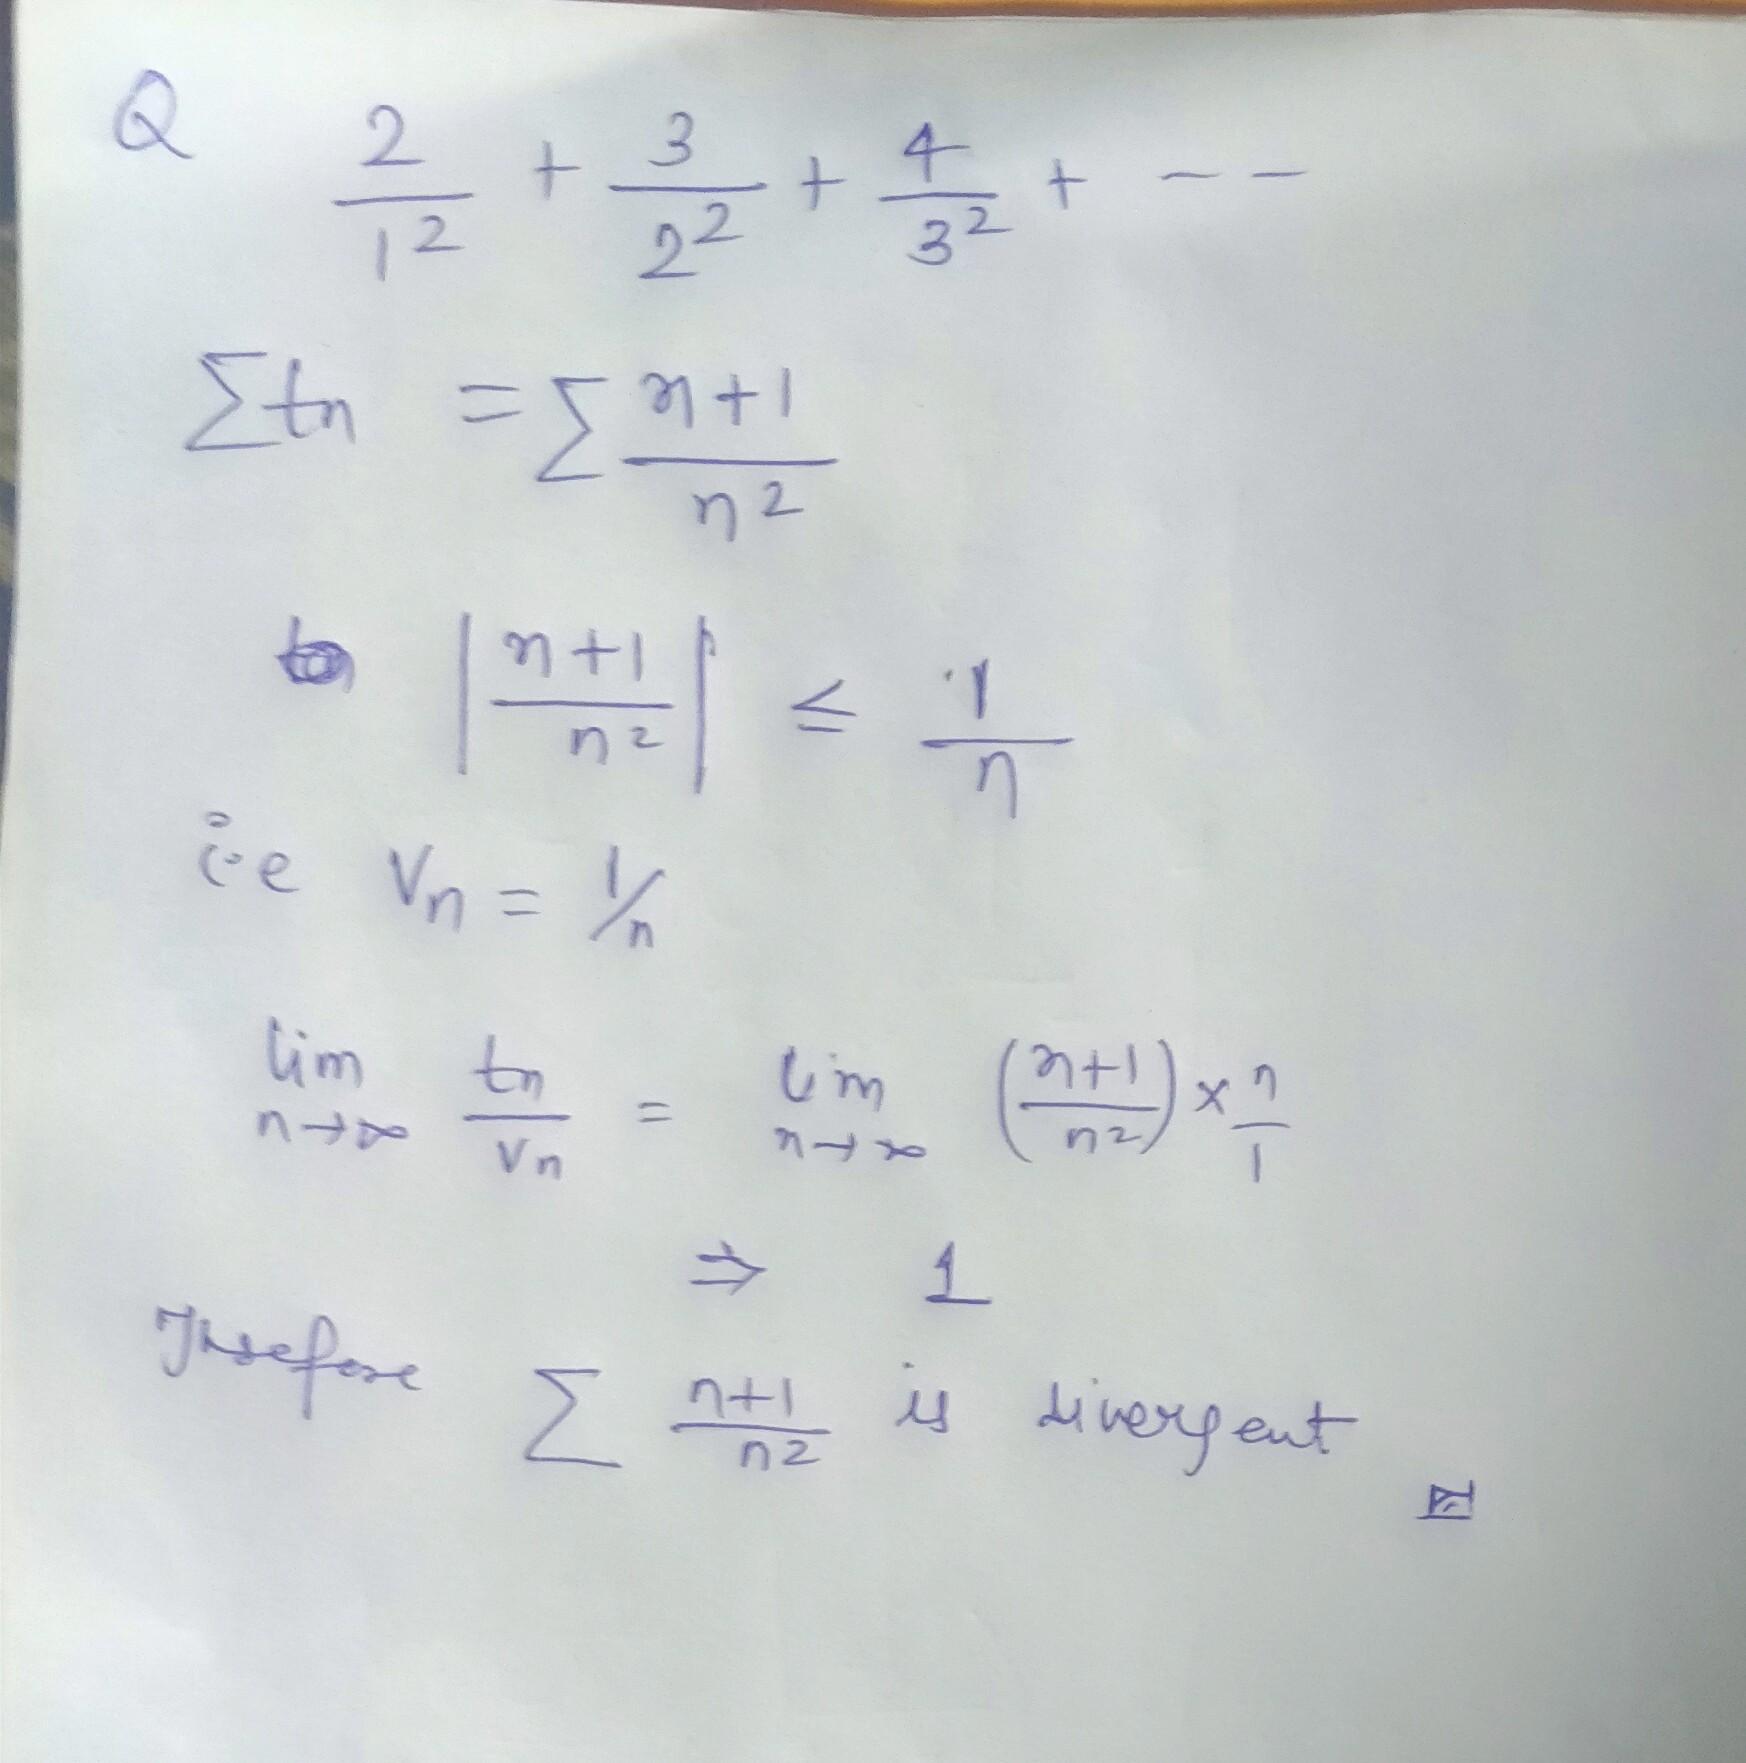 Q 2/1² + 3/2² + 4/3² + --
Σtn = Σ n+1/n²
|n+1/n²| ≤ 1/n
i.e Vn = 1/n
lim n→∞ tn/Vn = lim n→∞ (n+1/n²) × n/1
⇒ 1
Therefore Σ n+1/n² is divergent